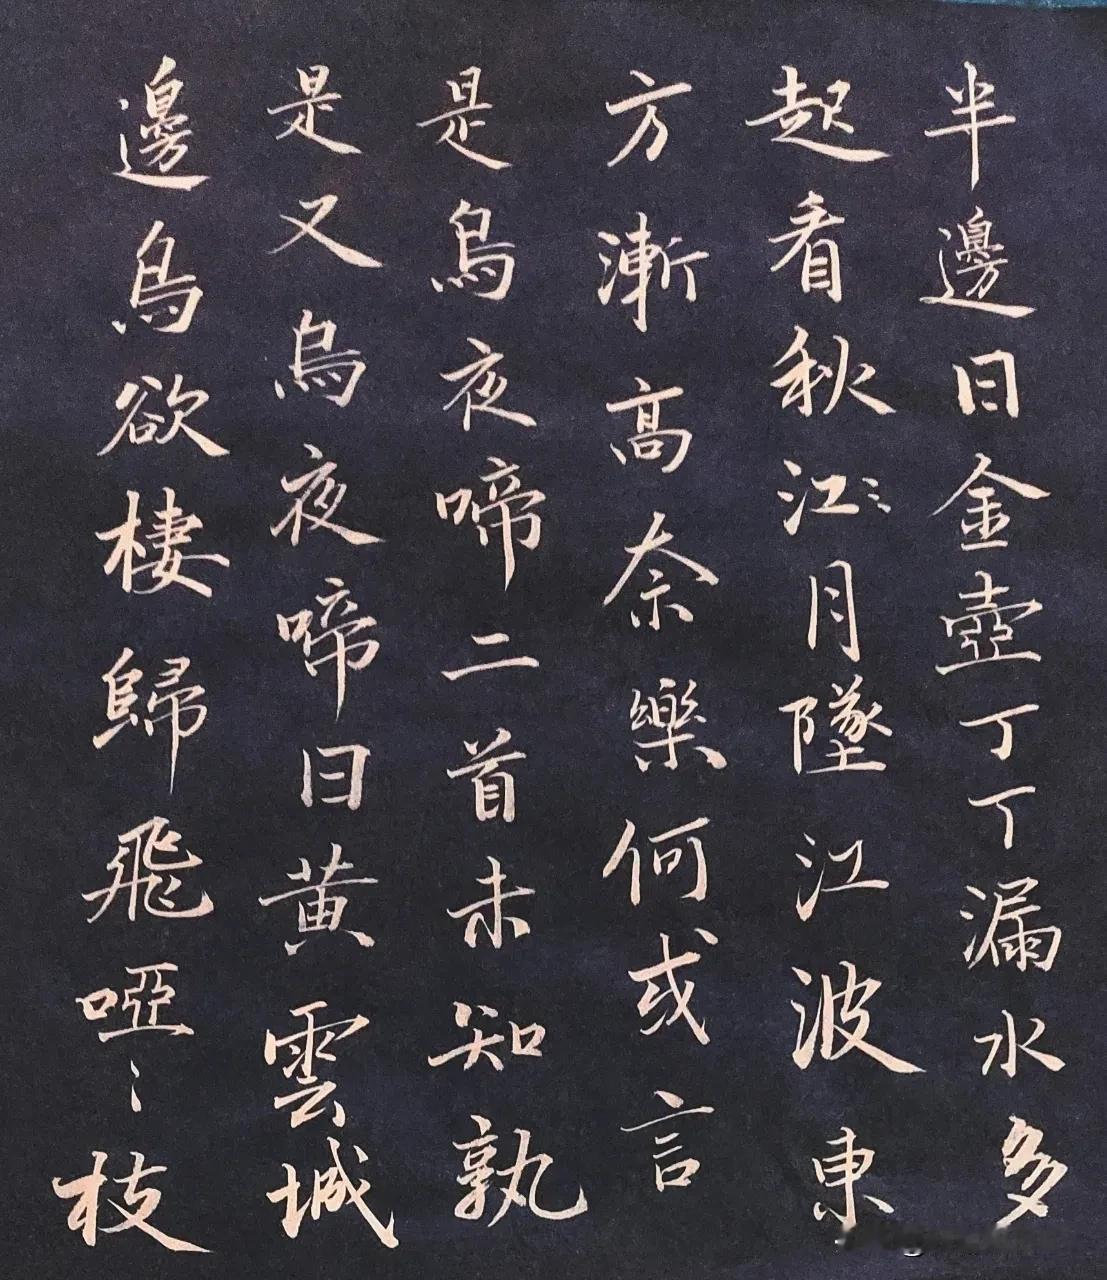 半邊日金壺丁丁漏水多
起看秋江〻月墜江波東
方漸高奈樂何或言
是烏夜啼二首未知孰
是又烏夜啼曰黄雲城
邊烏欲棲歸飛啞〻枝